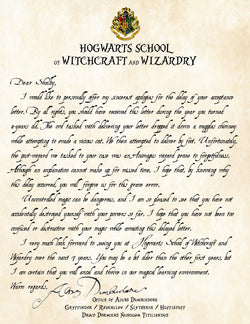 HOGWARTS SCHOOL
OF WITCHCRAFT AND WIZARDRY
Dear Shelby,
I would like to personally offer my sincerest apologies for the delay of your acceptance
letter. By all rights, you should have received this letter during the year you turned
11-years old. The owl tasked with delivering your letter dropped it down a muggles chimney
while attempting to evade a vicious cat. We then attempted to deliver by foot. Unfortunately,
the post-wizard we tasked to your case was an
prone to forgetfulness.
Although an explanation cannot make up for missed time, I hope that, by knowing why
this delay occurred, you will forgive us for this grave error.
Uncontrolled magic can be dangerous, and I am so pleased to see that you have not
accidentally destroyed yourself with your powers so far. I hope that you have not been too
confused or destructive with your magic while awaiting this delayed letter.
I very much look forward to seeing you at Hogwarts School of Witchcraft and
Wizardry over the next 7 years. You may be a bit older than the other first years, but
I am certain that you will excel and thrive in our magical learning environment.
Warm regards,
Albus Dumbledore
OFFICE OF ALBUS DUMBLEDORE
GRYFFINDOR / RAVENCLAW / SLYTHERIN / HUFFLEPUFF
DRACO DORMIENS NUNQUAM TITILLANDUS